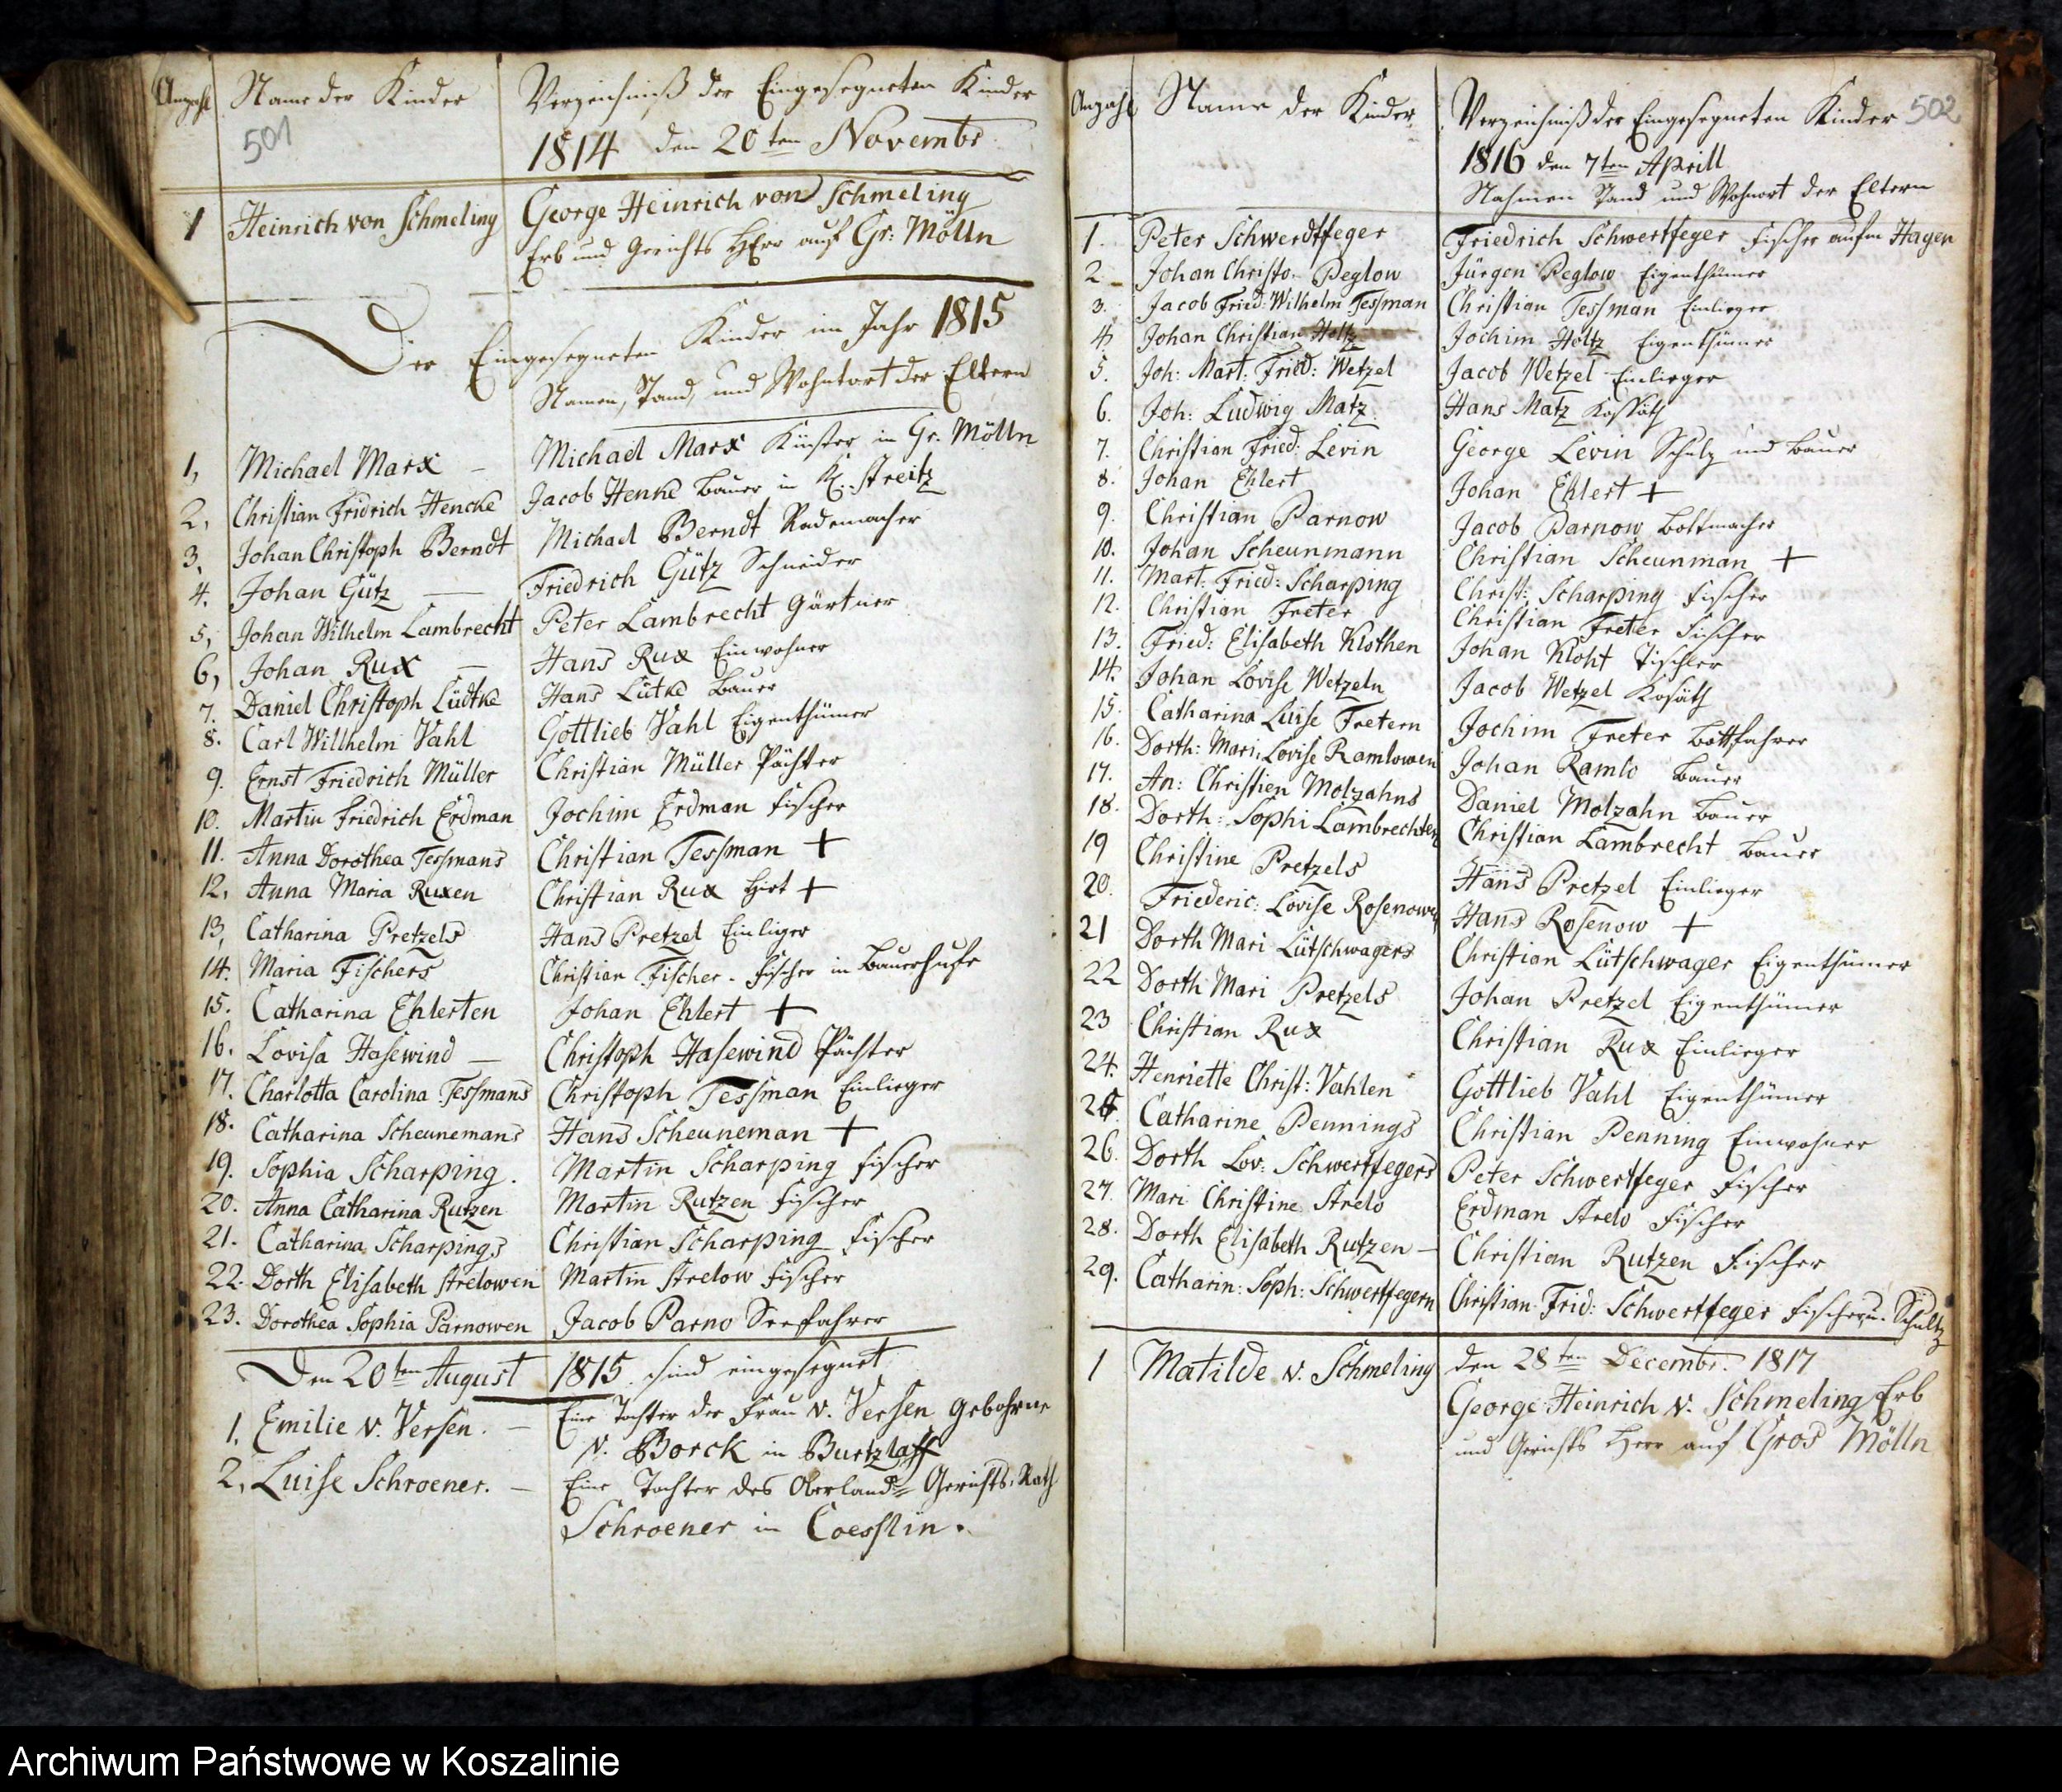 Anzahl Name der Kinder Verzeichniß der Eingesegneten Kinder
501 1814 den 20ten Novembr
1 Heinrich von Schmeling George Heinrich von Schmeling
Erb und Gerichts HErr auf Gr: Mölln
Der Eingesegneten Kinder im Jahr 1815
Namen, Stand, und Wohntort der Eltern
1, Michael Marx – Michael Marx Küster in Gr. Mölln
2, Christian Fridrich Hencke Jacob Henke Bauer in K. Streitz
3, Johan Christoph Berndt Michael Berndt Rademacher
4. Johan Gütz — Friedrich Gütz Schneider
5, Johan Wilhelm Lambrecht Peter Lambrecht Gärtner
6, Johan Rux — Hans Rux Einwohner
7. Daniel Christoph Lüdtke Hans Lütke Bauer
8. Carl Willhelm Vahl Gottlieb Vahl Eigenthümer
9. Ernst Friedrich Müller Christian Müller Pächter
10. Martin Friedrich Erdman Jochim Erdman Fischer
11. Anna Dorothea Tessmans Christian Tessman +
12, Anna Maria Ruxen Christian Rux Hirt +
13, Catharina Pretzels Hans Pretzel Einliger
14. Maria Fischers Christian Fischer - Fischer in Bauerhufe
15. Catharina Ehlerten Johan Ehlert +
16. Lovisa Hasewind — Christoph Hasewind Pächter
17. Charlotta Carolina Tessmans Christoph Tessman Einlieger
18. Catharina Scheunemans Hans Scheuneman +
19. Sophia Scharping. Martin Scharping Fischer
20. Anna Catharina Rutzen Martin Rutzen Fischer
21. Catharina Scharpings Christian Scharping Fischer
22. Dorth Elisabeth Strelowen Martin Strelow Fischer
23. Dorothea Sophia Parnowen Jacob Parno Seefahrer
Den 20ten August 1815. sind eingesegnet
1. Emilie v. Versen. — Eine Tochter der Frau v. Versen Gebohrne
v. Borck in Burtzlaff
2, Luise Schroener. — Eine Tochter des Oberlands Gerichts Rath
Schroener in Coesslin.
Anzahl Name der Kinder Verzeichniß der Eingesegneten Kinder 502
1816 den 7ten Aprill
Nahmen Stand und Wohnort der Eltern
1. Peter Schwerdtfeger Friedrich Schwertfeger Fischer aufm Hagen
2 - Johan Christo. Peglow Jürgen Peglow Eigenthümer
3. Jacob Fried: Wilhelm Tessman Christian Tessman Einlieger
4 Johan Christian Holtz Jochim Holtz Eigenthümer
5. Joh: Mart: Fried: Wetzel Jacob Wetzel Einlieger
6. Joh: Ludwig Matz Hans Matz Kossäth
7. Christian Fried: Levin George Levin Schulz und Bauer
8. Johan Ehlert Johan Ehlert +
9. Christian Parnow Jacob Parnow Boltmacher
10. Johan Scheunmann Christian Scheunman +
11. Mart: Fried: Scharping Christ: Scharping Fischer
12. Christian Freter Christian Freter Fischer
13. Fried: Elisabeth Klothen Johan Kloht Tischler
14. Johan Lovise Wetzeln Jacob Wetzel Kosäth
15. Catharina Luise Fretern Jochim Freter Bottfahrer
16. Dorth: Mari: Lovise Ramlowen Johan Ramlo Bauer
17. An: Christien Molzahns Daniel Molzahn Bauer
18. Dorth: Sophi Lambrechten Christian Lambrecht Bauer
19 Christine Pretzels Hans Pretzel Einlieger
20. Friederic: Lovise Rosenowen Hans Rosenow +
21 Dorth Mari Lütschwagers Christian Lütschwager Eigenthümer
22 Dorth Mari Pretzels Johan Pretzel Eigenthümer
23 Christian Rux Christian Rux Einlieger
24. Henriette Christ: Vahlen Gottlieb Vahl Eigenthümer
25. Catharine Pennings Christian Penning Einwohner
26. Dorth Lov: Schwertfegers Peter Schwertfeger Fischer
27. Mari Christine Strelo Erdman Strelo Fischer
28. Dorth Elisabeth Rutzen — Christian Rutzen Fischer
29. Catharin: Soph: Schwertfegern Christian Frid: Schwertfeger Fischer, u. Schultz
1 Matilde v. Schmeling den 28ten Decembr. 1817
George Heinrich v. Schmeling Erb
und Gerichts Herr auf Gros Mölln
Archiwum Państwowe w Koszalinie